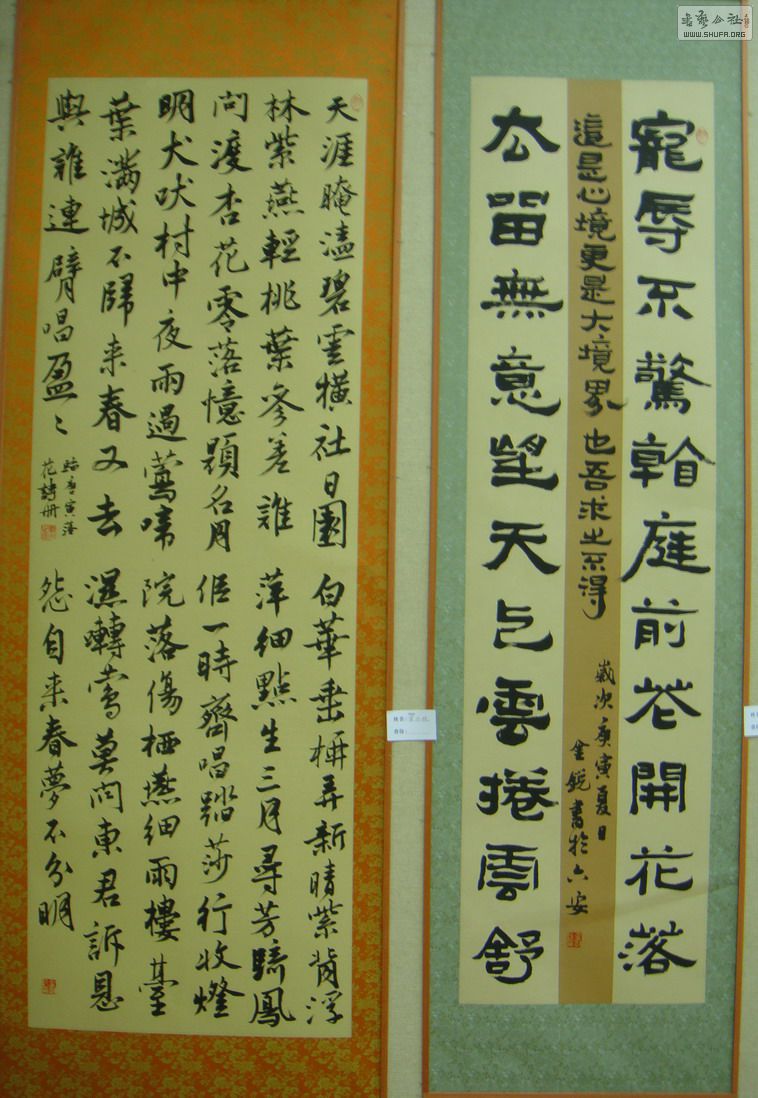 書藝公社
WWW.SHUFA.ORG
寵辱不驚看庭前花開花落
去留無意望天上雲捲雲舒
這是心境更是大境界也吾求之不得
歲次庚寅夏日
金銳書於六安
天涯晻溘碧雲橫社日園
林紫燕輕桃葉參差誰
問渡杏花零落憶題名月
明犬吠村中夜雨過鶯啼
葉滿城不歸來春又去
與誰連臂唱盈〻
臨唐寅落
花詩冊
白華垂柳弄新晴紫背浮
萍細點生三月尋芳蹟鳳
侶一時齊唱踏莎行收燈
院落傷栖燕細雨樓臺
濕轉鶯莫問東君訴恩
怨自來春夢不分明